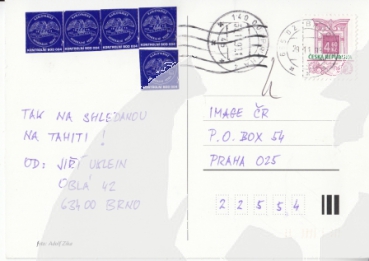 TAK NA SHLEDANOU
NA TAHITI !
OD: JIŘÍ UKLEIN
OBLÁ 42
63400 BRNO
IMAGE ČR
P.O. BOX 54
PRAHA 025
2 2 5 5 4
ČESKÁ REPUBLIKA